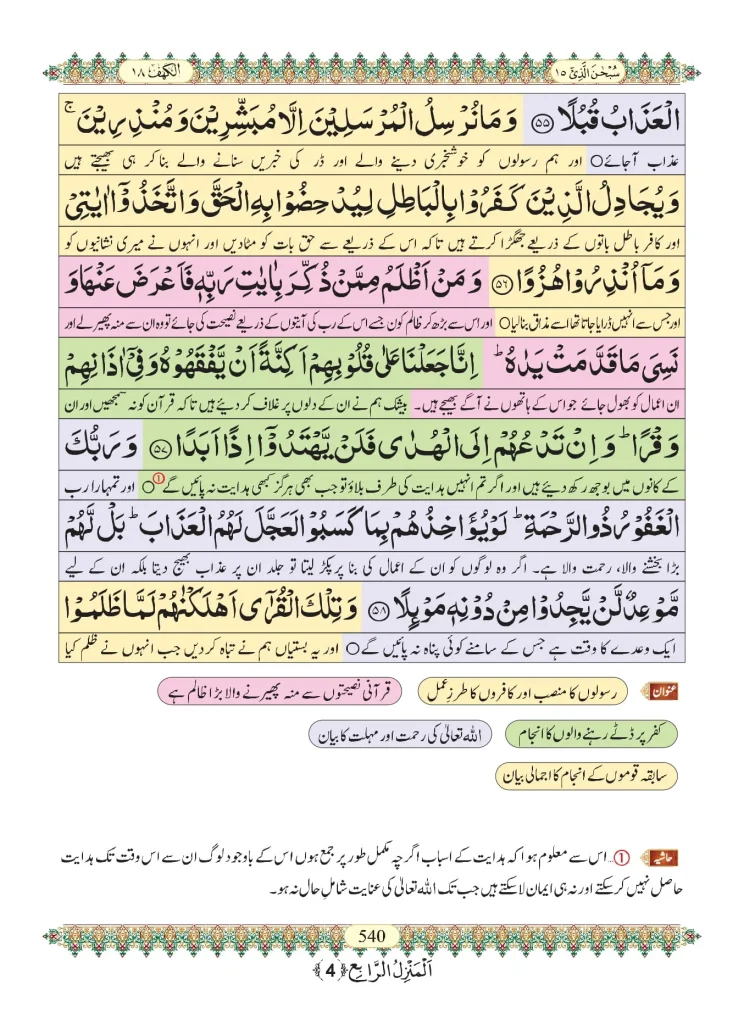 سُبْحٰنَ الَّذِیْۤ ۱۵
الکہف ۱۸
الْعَذَابُ قُبُلًا ﴿۵۵﴾ وَ مَا نُرْسِلُ الْمُرْسَلِیْنَ اِلَّا مُبَشِّرِیْنَ وَ مُنْذِرِیْنَ ۚ
عذاب آجائے ○ اور ہم رسولوں کو خوشخبری دینے والے اور ڈر کی خبریں سنانے والے بناکر ہی بھیجتے ہیں
وَ یُجَادِلُ الَّذِیْنَ كَفَرُوْا بِالْبَاطِلِ لِیُدْحِضُوْا بِهِ الْحَقَّ وَ اتَّخَذُوْۤا اٰیٰتِیْ
اور کافر باطل باتوں کے ذریعے جھگڑا کرتے ہیں تاکہ اس کے ذریعے سے حق بات کو مٹادیں اور انہوں نے میری نشانیوں کو
وَ مَاۤ اُنْذِرُوْا هُزُوًا ﴿۵۶﴾ وَ مَنْ اَظْلَمُ مِمَّنْ ذُكِّرَ بِاٰیٰتِ رَبِّهٖ فَاَعْرَضَ عَنْهَا وَ
اور جس سے انہیں ڈرایا جاتا تھا اسے مذاق بنالیا ○ اور اس سے بڑھ کر ظالم کون جسے اس کے رب کی آیتوں کے ذریعے نصیحت کی جائے تو وہ ان سے منہ پھیرلے اور
نَسِیَ مَا قَدَّمَتْ یَدٰهُ ؕ اِنَّا جَعَلْنَا عَلٰى قُلُوْبِهِمْ اَكِنَّةً اَنْ یَّفْقَهُوْهُ وَ فِیْۤ اٰذَانِهِمْ
ان اعمال کو بھول جائے جو اس کے ہاتھوں نے آگے بھیجے ہیں۔ بیشک ہم نے ان کے دلوں پر غلاف کردئیے ہیں تاکہ قرآن کو نہ سمجھیں اور ان
وَقْرًا ؕ وَ اِنْ تَدْعُهُمْ اِلَى الْهُدٰى فَلَنْ یَّهْتَدُوْۤا اِذًا اَبَدًا ﴿۵۷﴾ وَ رَبُّكَ
کے کانوں میں بوجھ رکھ دئیے ہیں اور اگر تم انہیں ہدایت کی طرف بلاؤ تو جب بھی ہرگز کبھی ہدایت نہ پائیں گے ①○ اور تمہارا رب
الْغَفُوْرُ ذُو الرَّحْمَةِ ؕ لَوْ یُؤَاخِذُهُمْ بِمَا كَسَبُوْا لَعَجَّلَ لَهُمُ الْعَذَابَ ؕ بَلْ لَّهُمْ
بڑا بخشنے والا، رحمت والا ہے۔ اگر وہ لوگوں کو ان کے اعمال کی بنا پر پکڑ لیتا تو جلد ان پر عذاب بھیج دیتا بلکہ ان کے لیے
مَّوْعِدٌ لَّنْ یَّجِدُوْا مِنْ دُوْنِهٖ مَوْىٕلًا ﴿۵۸﴾ وَ تِلْكَ الْقُرٰۤى اَهْلَكْنٰهُمْ لَمَّا ظَلَمُوْا
ایک وعدے کا وقت ہے جس کے سامنے کوئی پناہ نہ پائیں گے ○ اور یہ بستیاں ہم نے تباہ کردیں جب انہوں نے ظلم کیا
عنوان رسولوں کا منصب اور کافروں کا طرزِ عمل قرآنی نصیحتوں سے منہ پھیرنے والا بڑا ظالم ہے
کفر پر ڈٹے رہنے والوں کا انجام اللہ تعالیٰ کی رحمت اور مہلت کا بیان
سابقہ قوموں کے انجام کا اجمالی بیان
حاشیہ ①...اس سے معلوم ہوا کہ ہدایت کے اسباب اگرچہ مکمل طور پر جمع ہوں اس کے باوجود لوگ ان سے اس وقت تک ہدایت
حاصل نہیں کرسکتے اور نہ ہی ایمان لاسکتے ہیں جب تک اللہ تعالیٰ کی عنایت شاملِ حال نہ ہو۔
540
اَلْمَنْزِلُ الرَّابِع ﴿4﴾